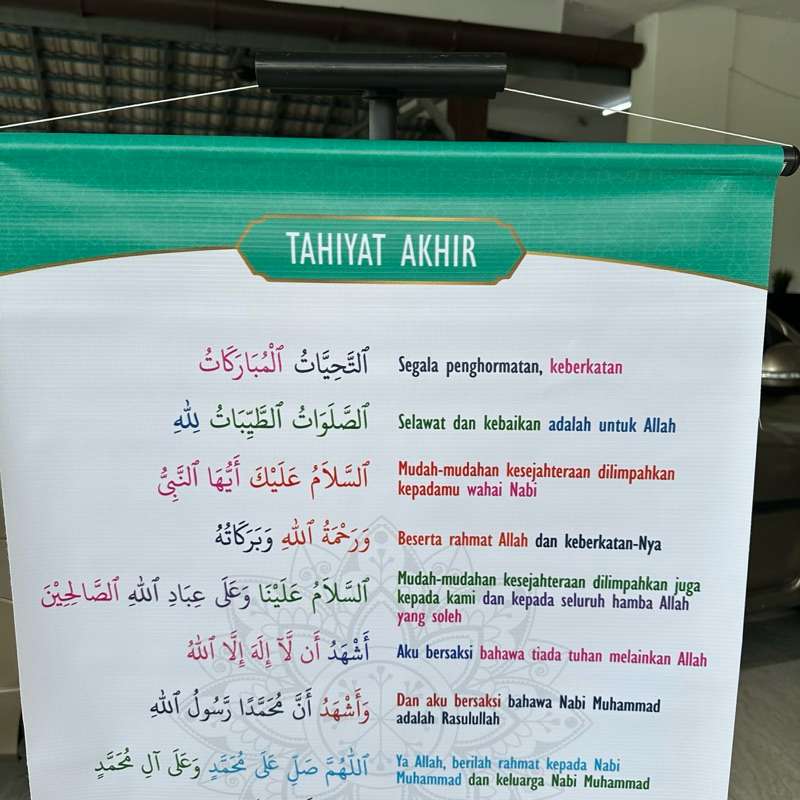 TAHIYAT AKHIR
ٱلتَّحِيَّاتُ ٱلْمُبَارَكَاتُ
Segala penghormatan, keberkatan
ٱلصَّلَوَاتُ ٱلطَّيِّبَاتُ لِلّٰهِ
Selawat dan kebaikan adalah untuk Allah
ٱلسَّلَامُ عَلَيْكَ أَيُّهَا ٱلنَّبِيُّ
Mudah-mudahan kesejahteraan dilimpahkan
kepadamu wahai Nabi
وَرَحْمَةُ ٱللّٰهِ وَبَرَكَاتُهُ
Beserta rahmat Allah dan keberkatan-Nya
ٱلسَّلَامُ عَلَيْنَا وَعَلَى عِبَادِ ٱللّٰهِ ٱلصَّالِحِيْنَ
Mudah-mudahan kesejahteraan dilimpahkan juga
kepada kami dan kepada seluruh hamba Allah
yang soleh
أَشْهَدُ أَن لَّآ إِلَهَ إِلَّا ٱللّٰهُ
Aku bersaksi bahawa tiada tuhan melainkan Allah
وَأَشْهَدُ أَنَّ مُحَمَّدًا رَّسُولُ ٱللّٰهِ
Dan aku bersaksi bahawa Nabi Muhammad
adalah Rasulullah
ٱللّٰهُمَّ صَلِّ عَلَى مُحَمَّدٍ وَعَلَى آلِ مُحَمَّدٍ
Ya Allah, berilah rahmat kepada Nabi
Muhammad dan keluarga Nabi Muhammad